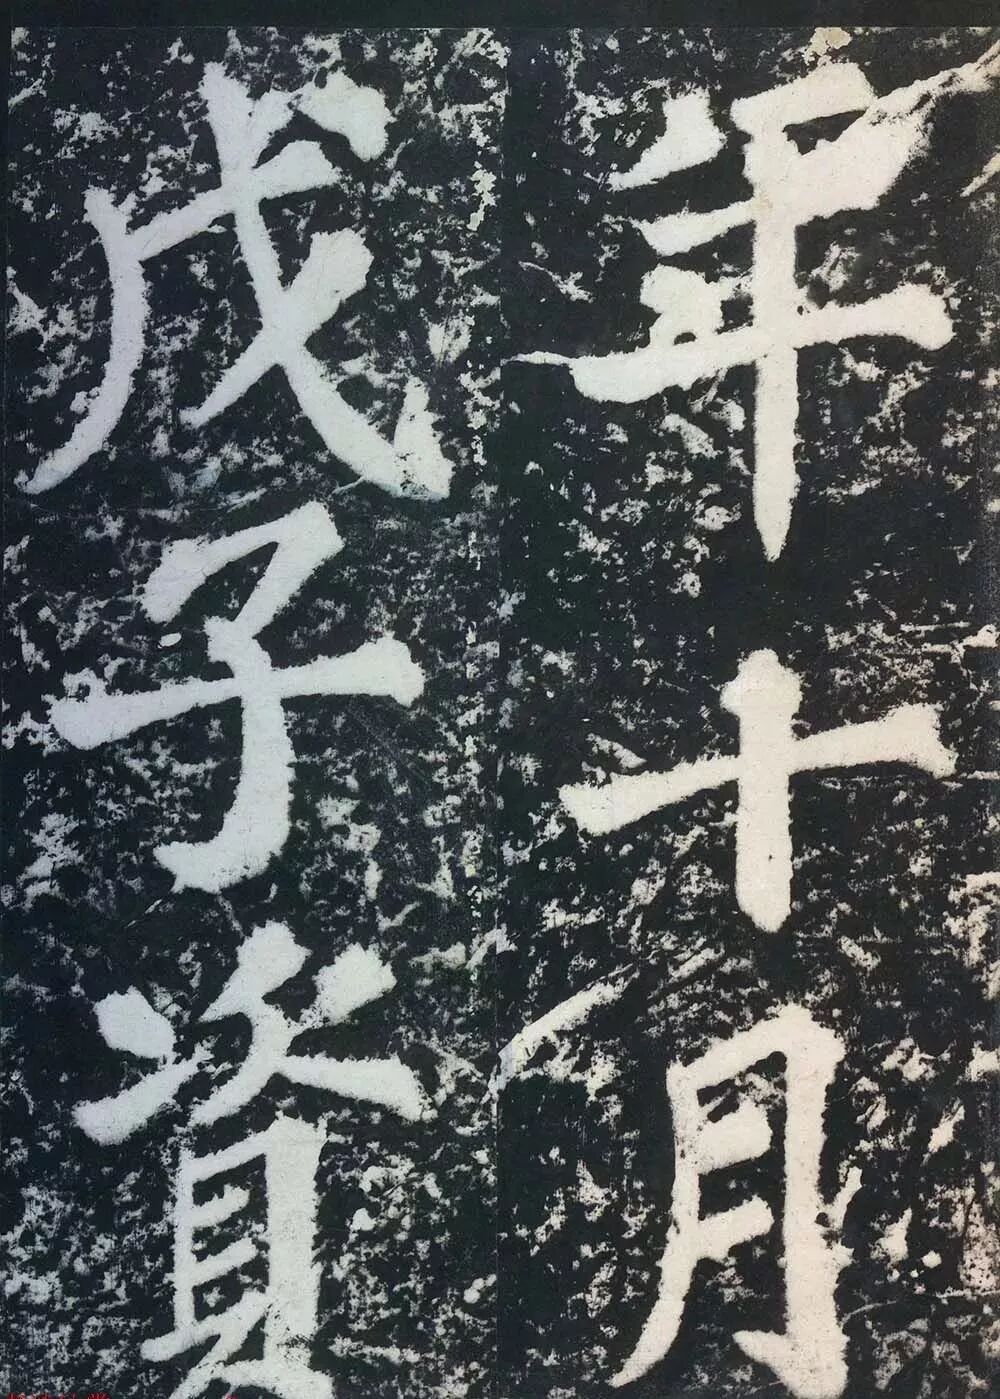 年十月
戊子資